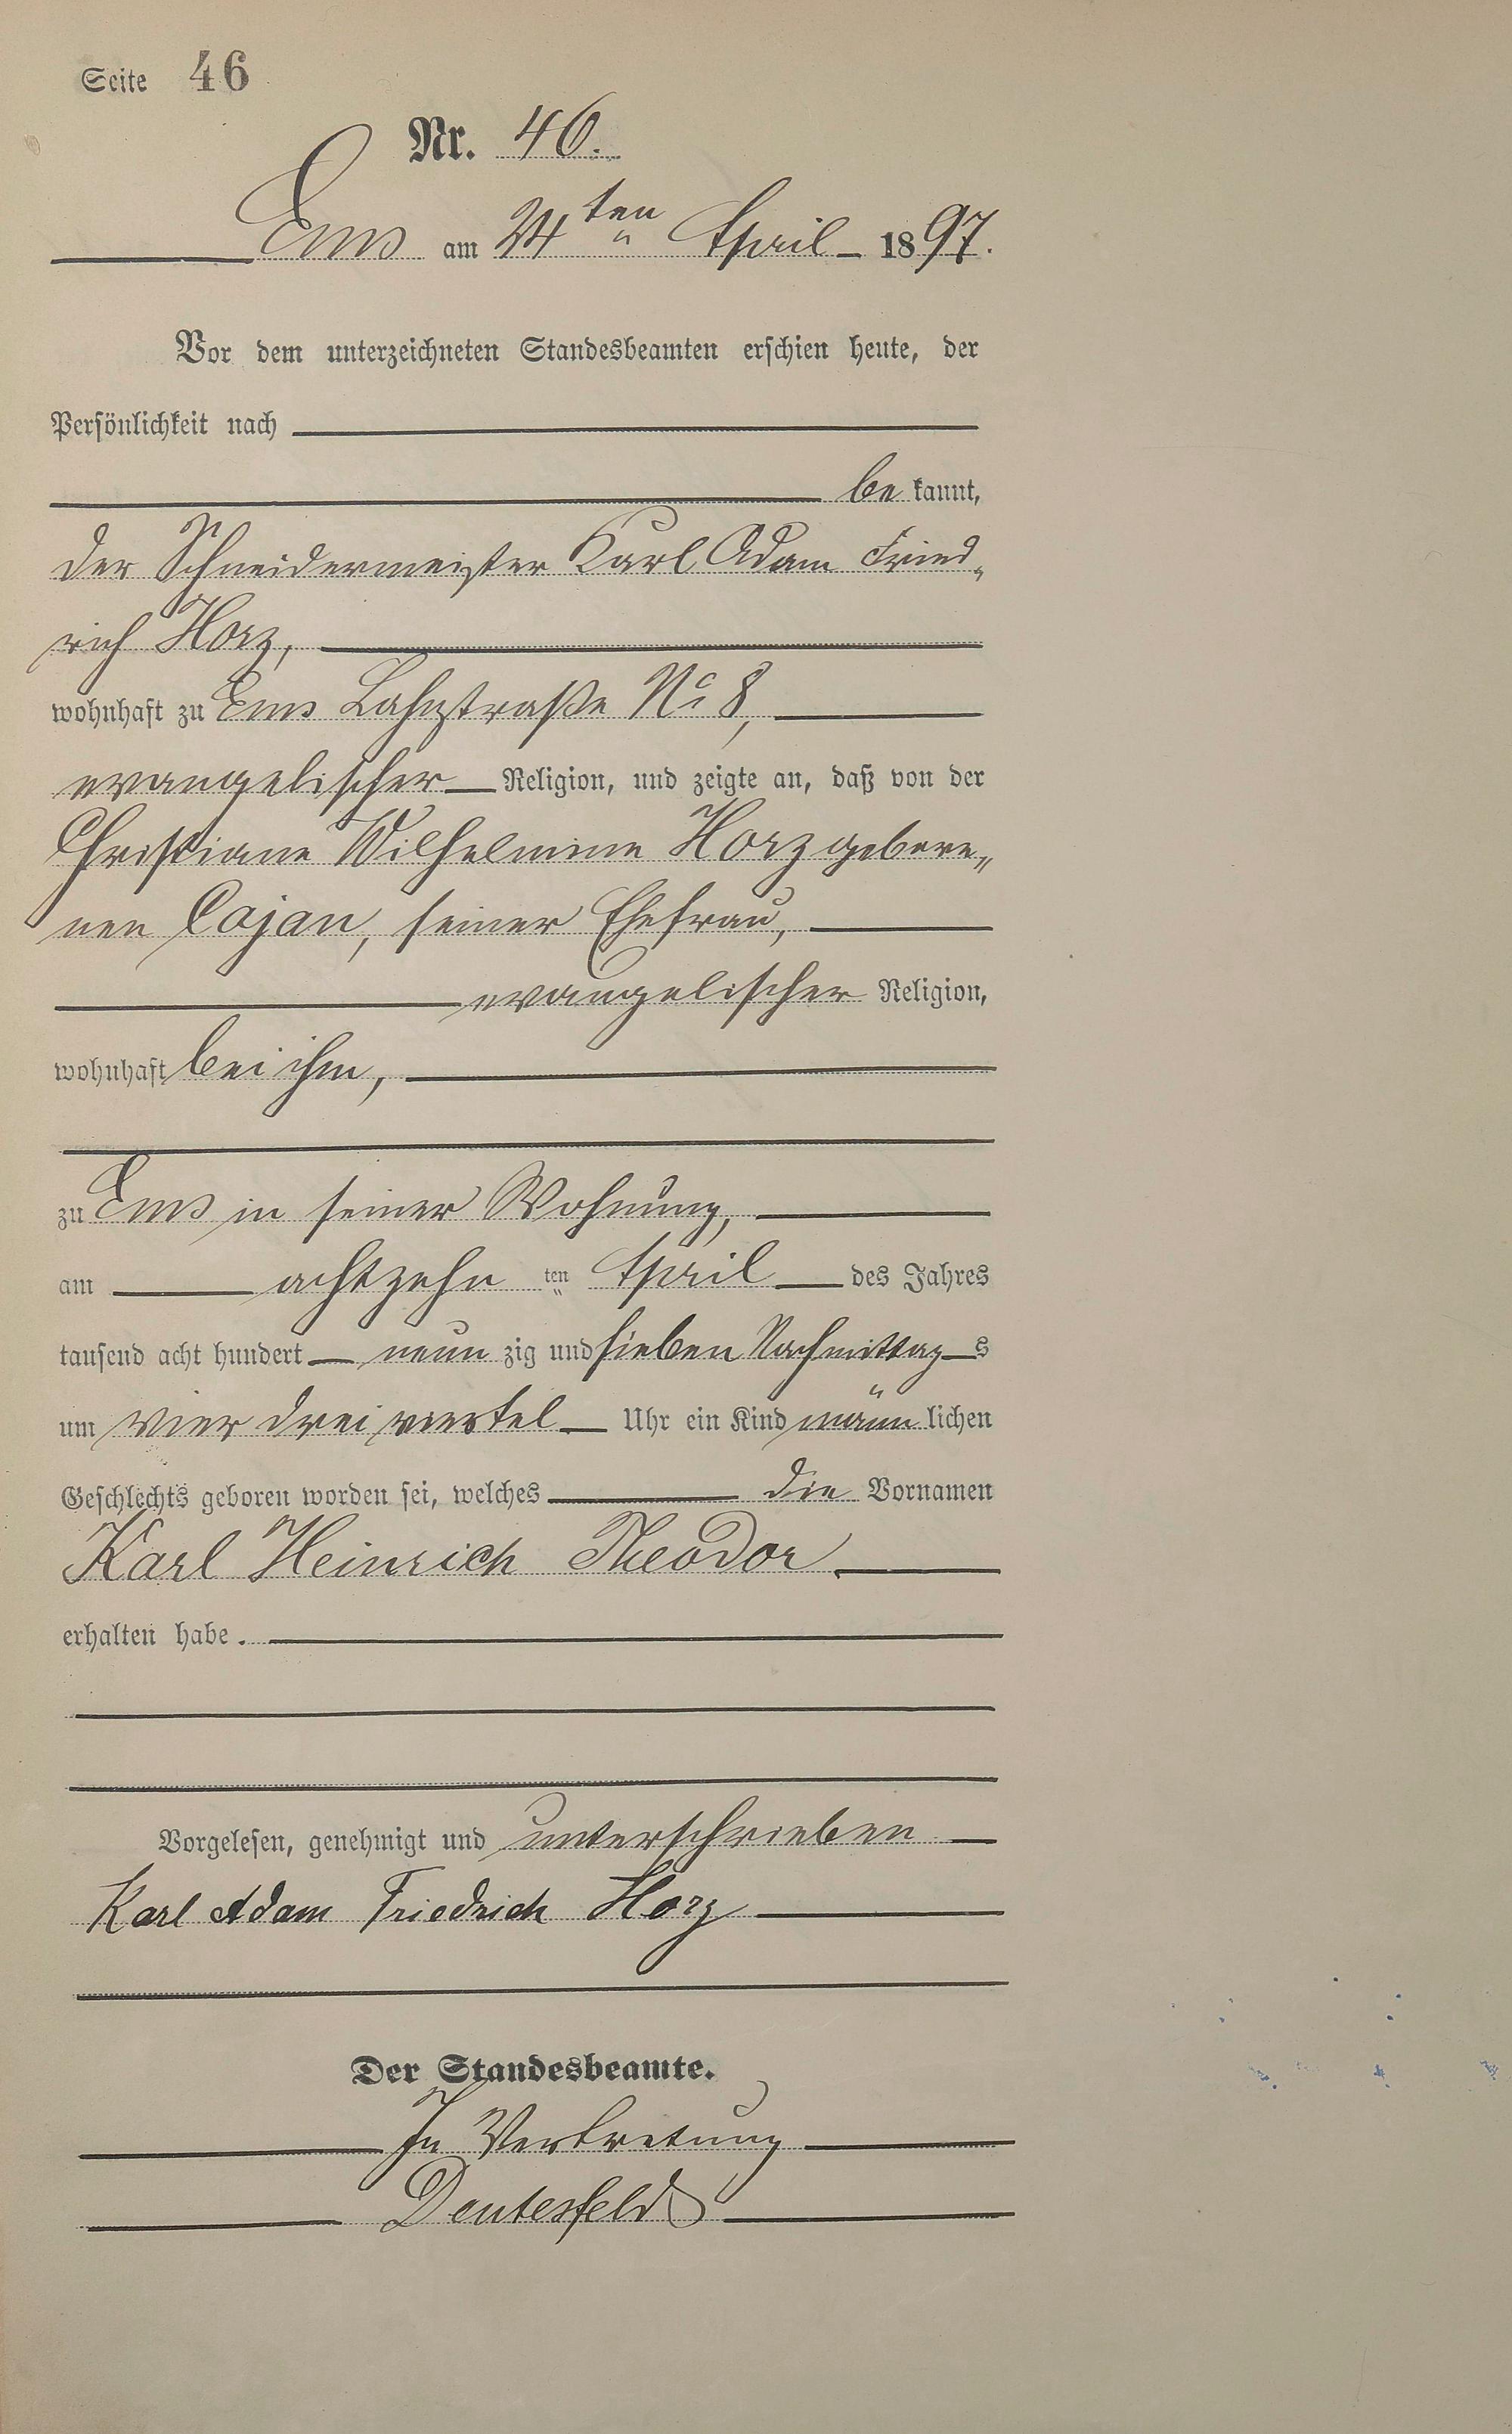 Seite 46
Nr. 46.
Ems am 24ten April 1897.
Vor dem unterzeichneten Standesbeamten erschien heute, der
Persönlichkeit nach
be kannt,
der Schneidermeister Karl Adam Fried-
rich Horz,
wohnhaft zu Ems Lahnstraße No 8,
evangelischer Religion, und zeigte an, daß von der
Christiane Wilhelmine Horz gebore-
nen Cajan, seiner Ehefrau,
evangelischer Religion,
wohnhaft bei ihm,
zu Ems in seiner Wohnung,
am achtzehn ten April des Jahres
tausend acht hundert neun zig und sieben Nachmittag s
um vier dreiviertel Uhr ein Kind männ lichen
Geschlechts geboren worden sei, welches die Vornamen
Karl Heinrich Theodor
erhalten habe.
Vorgelesen, genehmigt und unterschrieben
Karl Adam Friedrich Horz
Der Standesbeamte.
In Vertretung
Deutesfeld